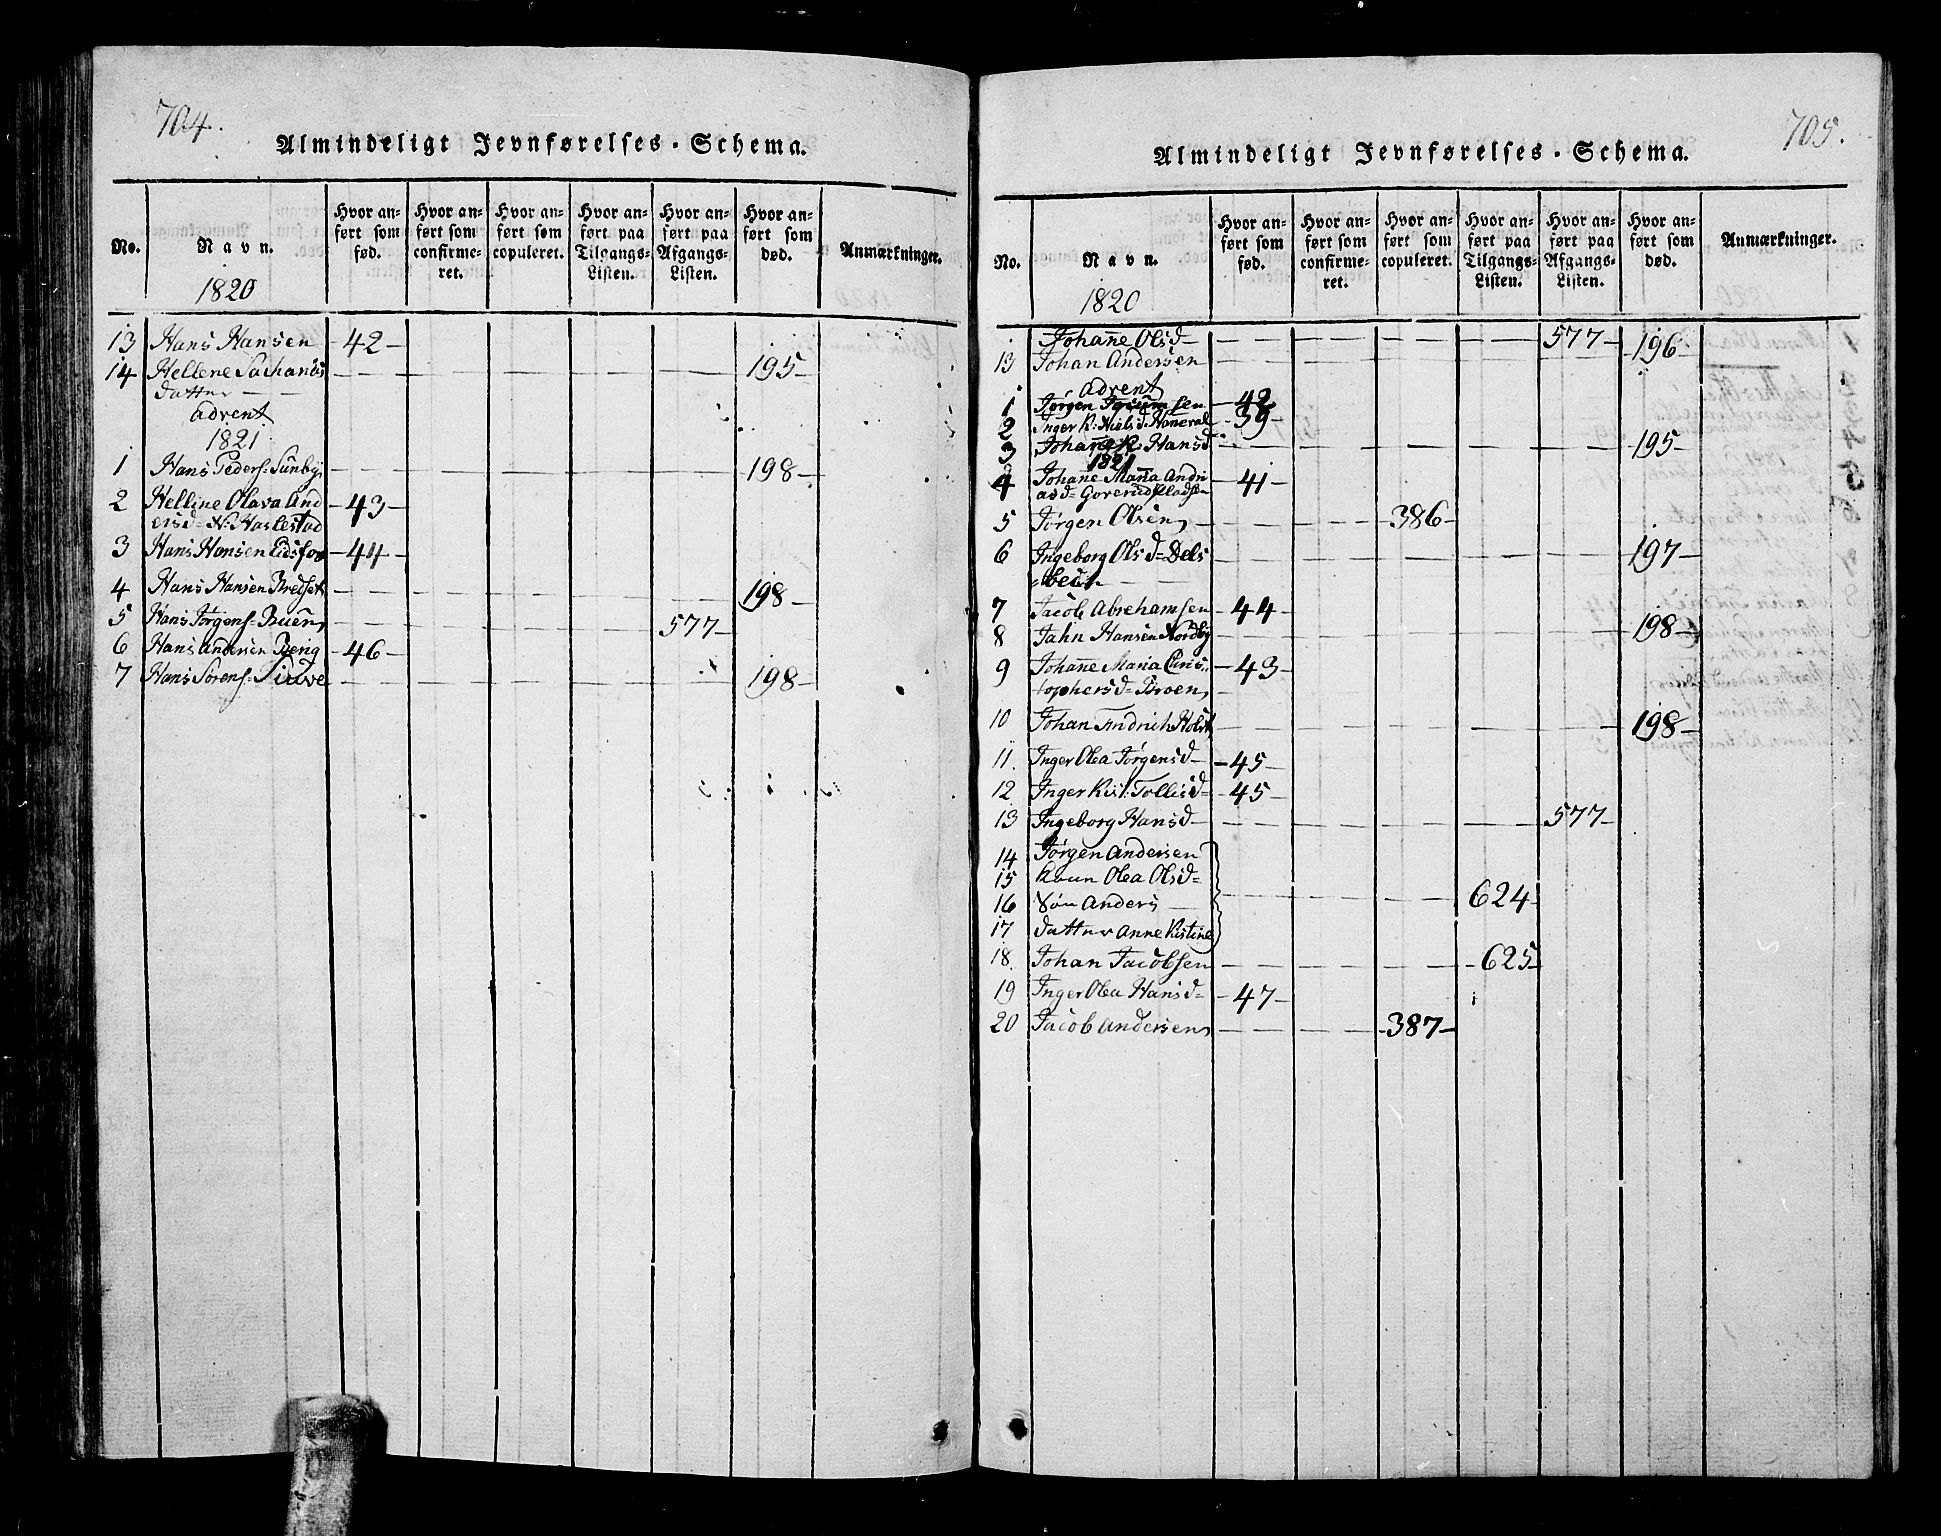 704.
Almindeligt Jevnførelses-Schema.
No.
Navn.
1820
Hvor anført som fød.
Hvor anført som confirmeret.
Hvor anført som copuleret.
Hvor anført paa Tilgangs-Listen.
Hvor anført paa Afgangs-Listen.
Hvor anført som død.
Anmærkninger.
13 Hans Hansen 42
14 Hellene Zachariæs 195
datter
advent
1821
1 Hans Peders: Sunby 198
2 Helline Olava And
ersd= N: Haslestad 43
3 Hans Hansen Eidsfos 44
4 Hans Hansen Bredset 198
5 Hans Jørgens: Buen 577
6 Hans Andersen Beng 46
7 Hans Sørens: 198
705.
Almindeligt Jevnførelses-Schema.
No.
Navn.
1820
Hvor anført som fød.
Hvor anført som confirmeret.
Hvor anført som copuleret.
Hvor anført paa Tilgangs-Listen.
Hvor anført paa Afgangs-Listen.
Hvor anført som død.
Anmærkninger.
Johanne Olsd 577
13 Johan Andersen 196
advent
1 Jørgen 42
2 Inger K: Nielsd. Hanerød 39
3 Johanne K. Hansd 195
1821
4 Johane Maria Andri
asd= 41
5 Jørgen Olsen 386
6 Ingeborg Olsd= Dels 197
7 Jacob Abrahamsen 44
8 Jahn Hansen Nordby 198
9 Johanne Maria Chris
tophersd= Broen 43
10 Johan Fridrich Holst 198
11. Inger Olea Jørgensd 45
12 Inger Kist: Tollefsd= 45
13 Ingeborg Hansd 577
14 Jørgen Andersen
15 Koun Olea Olsd=
16 Søn Anders 624
17 datter Anne Kistine
18. Johan Jacobsen 625
19 Inger Olea Hansd= 47
20 Jacob Andersen 387